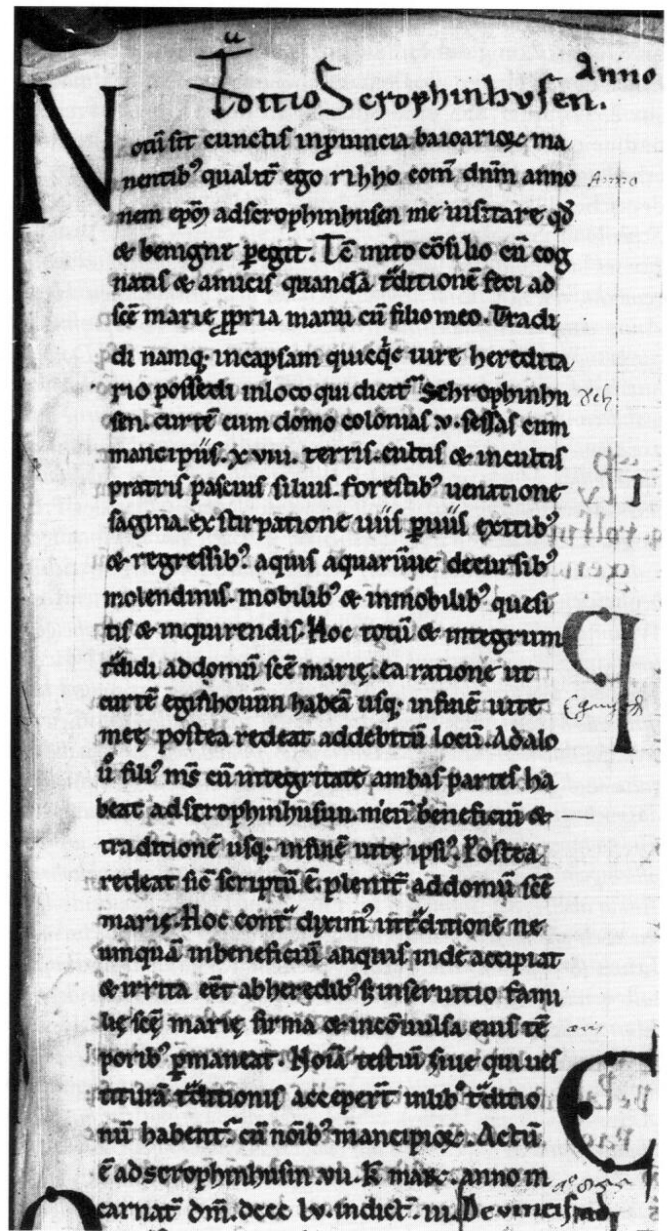 Anno
Tͣditio Scrophinhusen.
Notū sit cunctis in ꝓuincia baioarioꝝ ma
nentib᷒ qualit͛ ego rihho com̄ dnm̄ anno
nem ep̄m ad scrophinhusen me uisitare qđ
& benigne ꝑegit. Tē inito cōsilio cū cog
natis & amicis quandā tͣditionē feci ad
sc̄e marie ꝓpria manu cū filio meo. Tradi
di namq; in capsam quicq̇d iure heredita
rio possedi in loco qui dicit͛ Schrophinhu
sen. curtē cum domo colonias .v. sessas cum
mancipiis .xviii. terris. cultis & incultis
pratis pascuis siluis. forestib᷒ uenatione
sagina. exstirpatione uiis ꝑuiis exitib᷒
& regressib᷒ aquis aquarūue decursib᷒
molendinis. mobilib᷒ & inmobilib᷒ quesi
tis & inquirendis. Hoc totū & integrum
tͣdidi ad domū sc̄e marię. ea ratione ut
curtē egisthouun habeā usq; in finē uite
meę postea redeat ad debitū locū. Adalo
ū fili᷒ ms̄ cū integritate ambas partes ha
beat ad scrophinhusun. meū beneficiū &
traditionē usq; in finē uitę ipsi᷒. Postea
redeat sic̄ scriptū ē. plenit͛ ad domū sc̄e
marię. Hoc contͣ dixim᷒ in tͣditione ne
umquā in beneficiū aliquis inde accipiat
& irrita eēt ab heredib᷒ ꝫ in seruitio fami
lię sc̄e marię firma & inconuulsa eius tē
porib᷒ ꝑmaneat. Noīa testiū siue qui ues
titurā tͣditionis acceper̄t in lib᷒ tͣditio
nū habent͛ cū noīb᷒ mancipioꝝ. Actū
ē ad scrophinhusin .vii. k̄ mar. anno in
carnat̄ dnī. dccc lv. indict̄. iii. De uincis